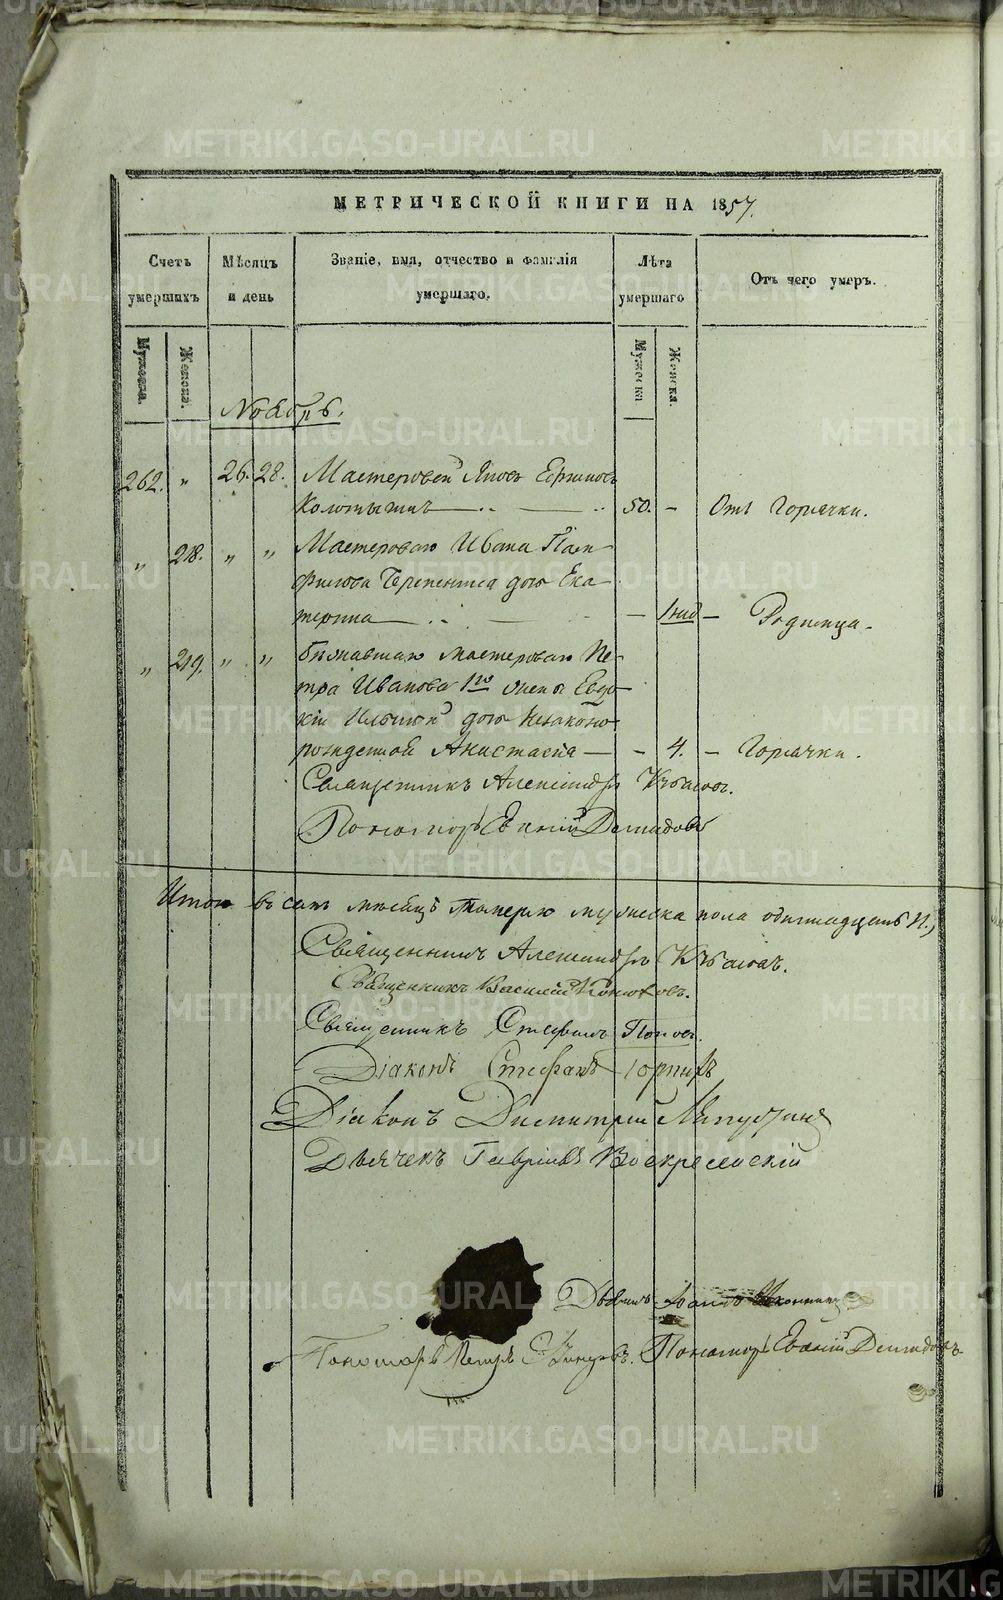 МЕТРИЧЕСКОЙ КНИГИ НА 1857.
Счетъ умершихъ
Мѣсяцъ и день
Званіе, имя, отчество и фамилія умершаго.
Лѣта умершаго
Отъ чего умеръ.
Мужеска.
Женска.
Мужеска
Женска.
Ноябрь.
262. „ 26. 28. Мастеровой Яковъ
50. - Отъ Горячки.
„ 218. „ „ Мастероваго Ивана Пам-
филова дочь Ека-
терина - - Родимца.
„ 219. „ „ мастероваго Пе-
тра Иванова 1го жены Евдо-
кіи дочь Незаконно-
рожденной Анастасія - - 4. - Горячки.
Священникъ Александръ
Пономарь Евгеній Демидовъ
Итого въ семъ мѣсяцѣ померло мужеска пола одиннадцать
Священникъ Александръ
Священникъ Василій Конюховъ.
Священникъ Стефанъ Поповъ.
Діаконъ Стефанъ
Діаконъ Димитрій Лапустинъ
Дьячекъ Гавріилъ Воскресенскій
Дьячекъ Іоаннъ
Пономарь Петръ Пономарь Евгеній Демидовъ
METRIKI.GASO-URAL.RU